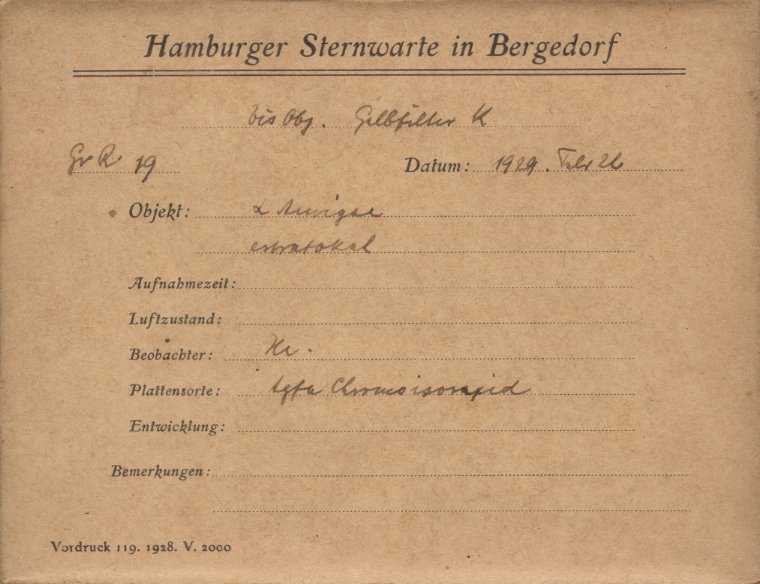 Hamburger Sternwarte in Bergedorf
vis Obj. Gelbfilter K
Gr R 19 Datum: 1929. Febr 26
Objekt: α Aurigae
extrafokal
Aufnahmezeit:
Luftzustand:
Beobachter:
Plattensorte: Agfa Chromoisorapid
Entwicklung:
Bemerkungen:
Vordruck 119. 1928. V. 2000